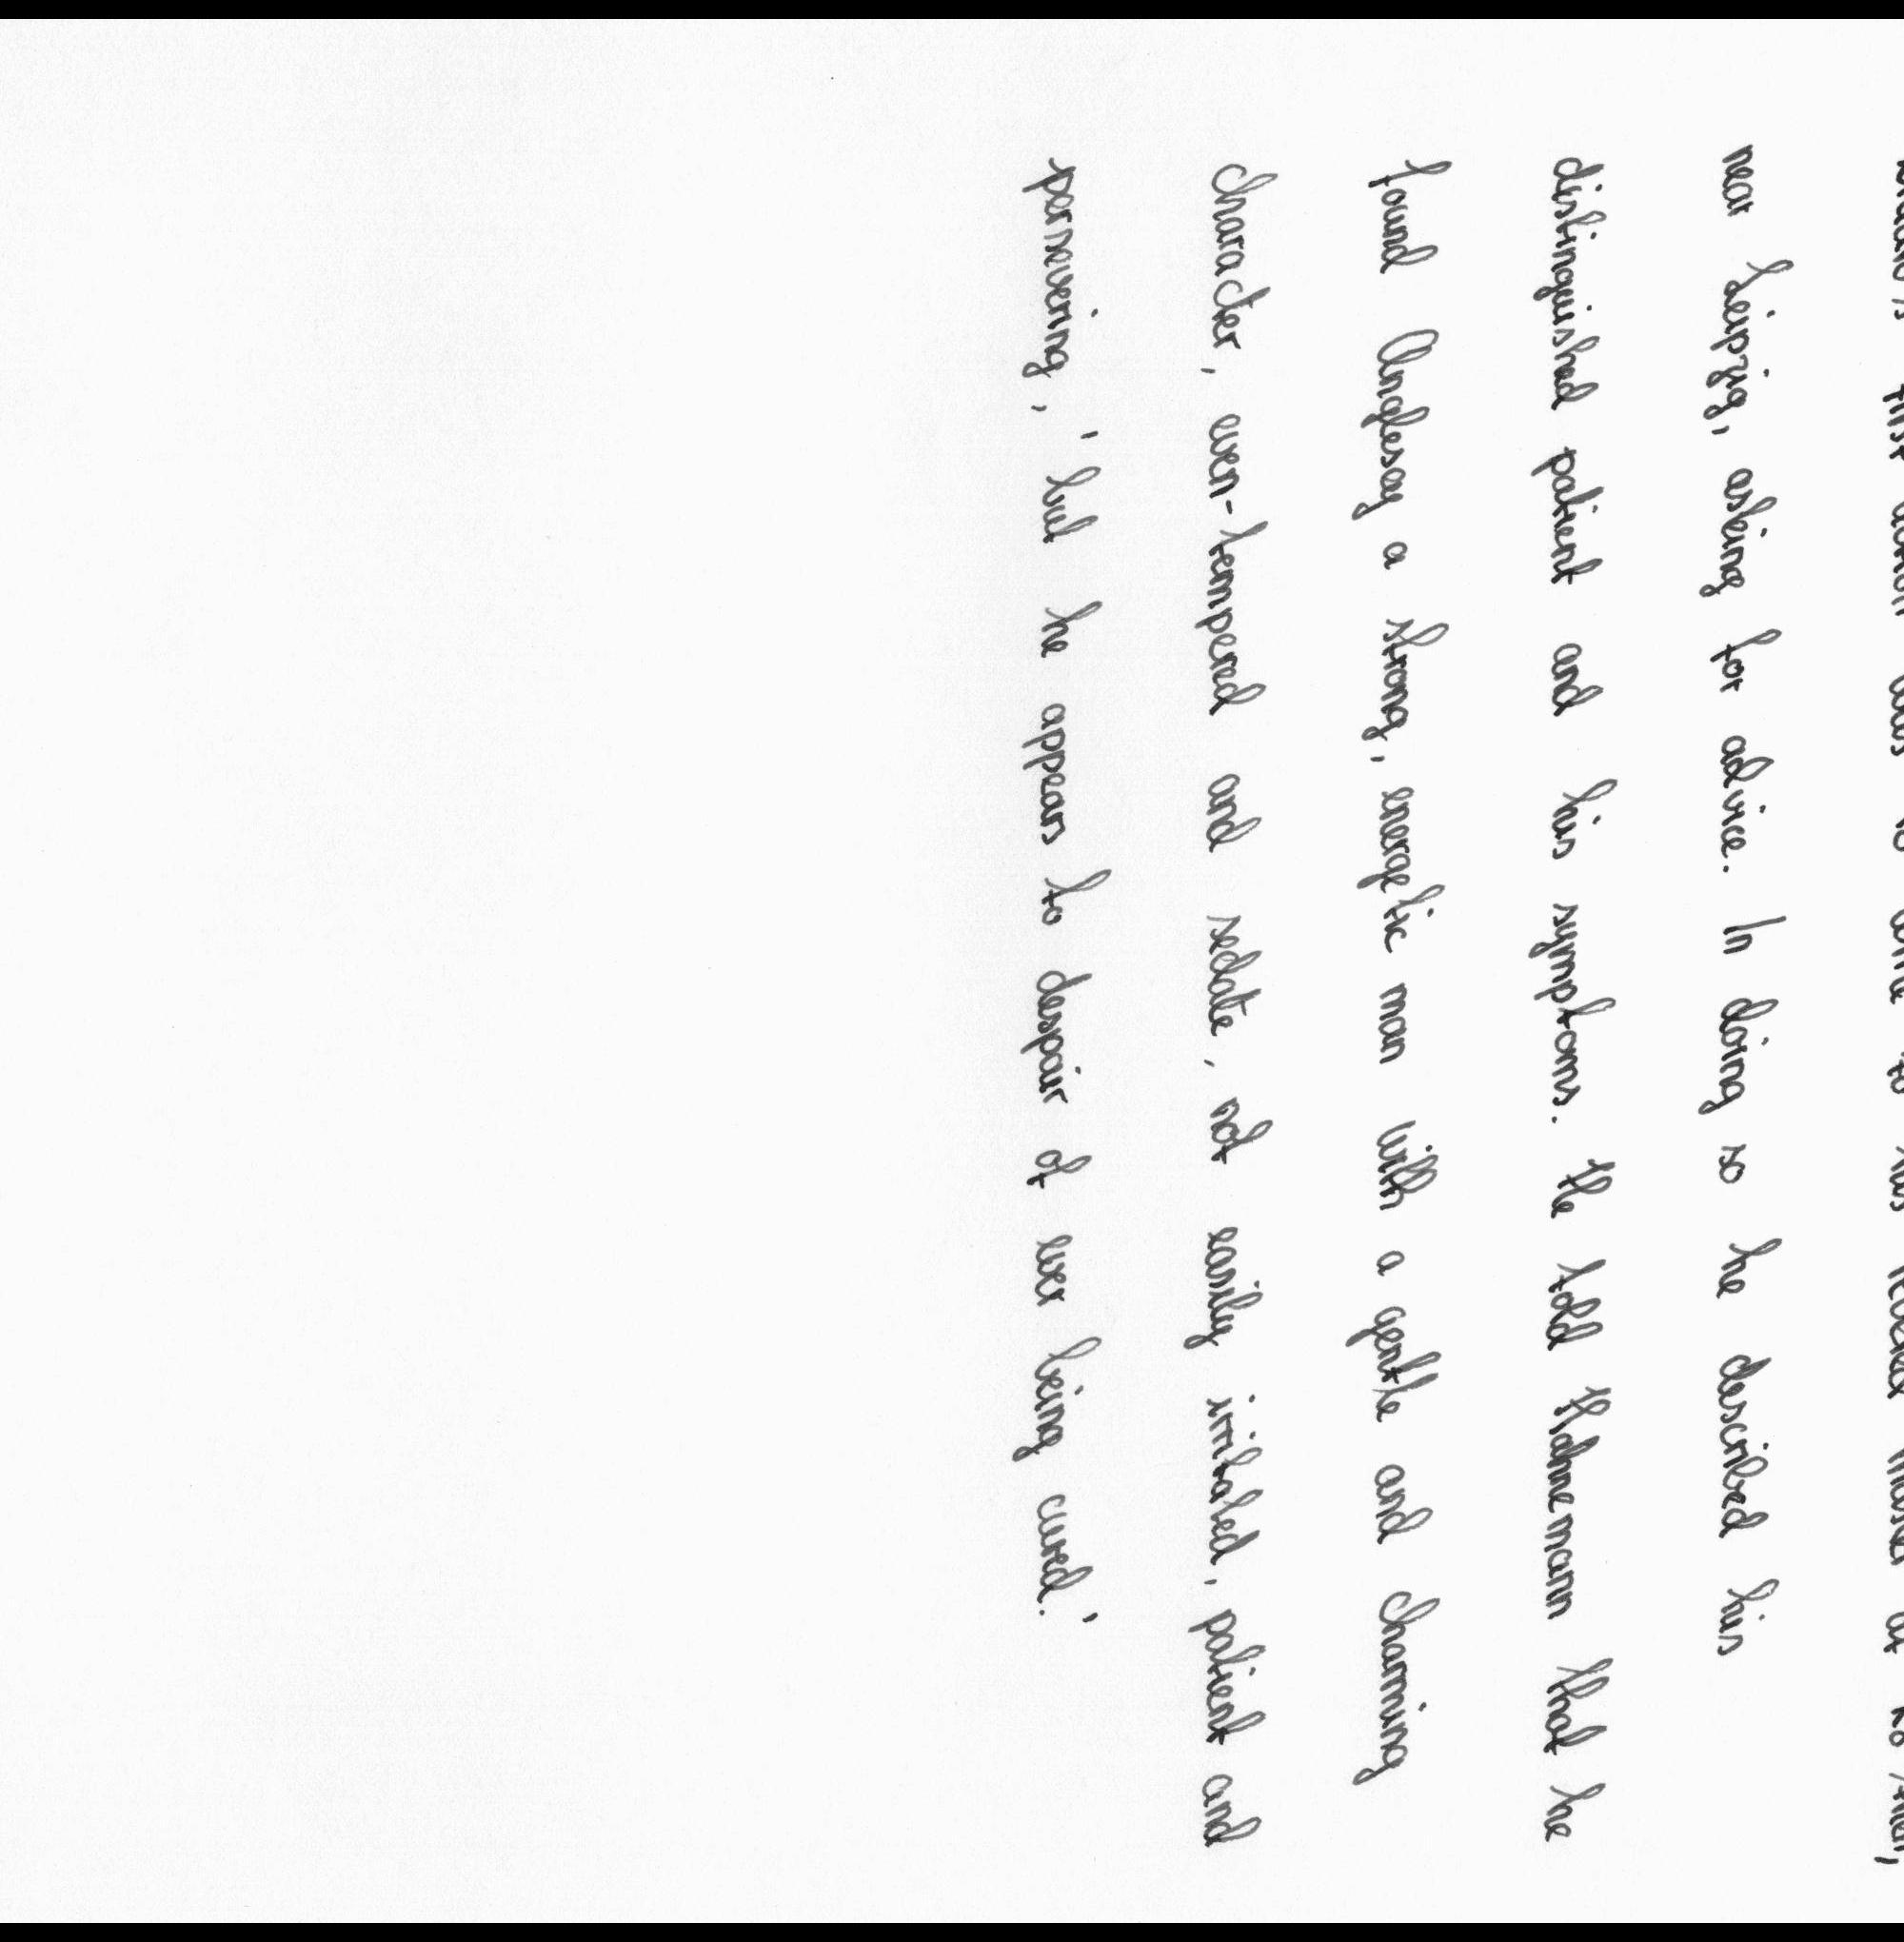 first action was to write to his master at Köthen,
near Leipzig, asking for advice. In doing so he described his
distinguished patient and his symptoms. He told Hahnemann that he
found Anglesey a strong, energetic man with a gentle and charming
character, even-tempered and sedate, not easily irritated, patient and
persevering, 'but he appears to despair of ever being cured.'